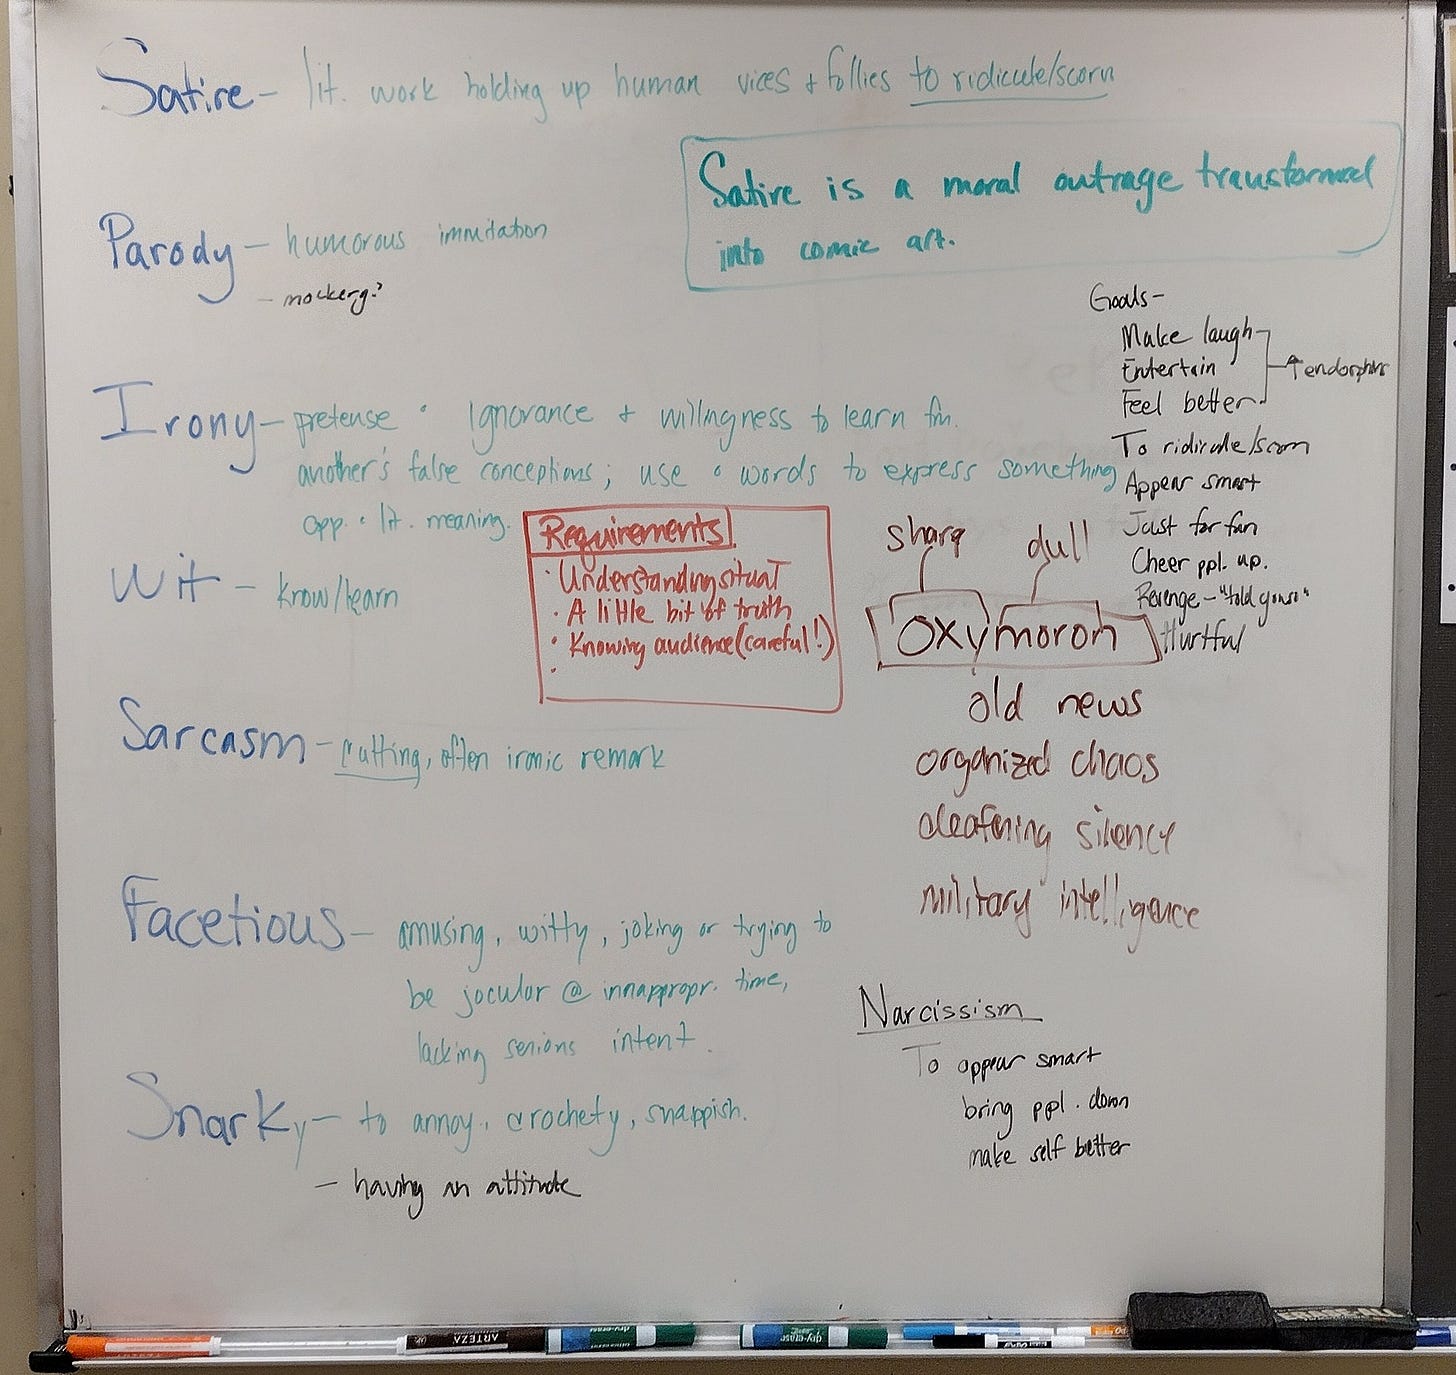 Satire - lit. work holding up human vices + follies to ridicule/scorn
Satire is a moral outrage transformed
into comic art.
Parody - humorous immitation
- mockery?
Irony - pretense ° ignorance + willingness to learn fm.
another's false conceptions; use ° words to express something
opp. ° lit. meaning.
Wit - know/learn
Requirements
· Understanding situat
· A little bit of truth
· Knowing audience (careful!)
·
Sarcasm - cutting, often ironic remark
Facetious - amusing, witty, joking or trying to
be jocular @ innappropr. time,
lacking serious intent.
Snarky - to annoy, crochety, snappish.
- having an attitude
Goals -
Make laugh
Entertain
Feel better
↑ endorphins
To ridicule/scorn
Appear smart
Just for fun
Cheer ppl. up.
Revenge - "told you so"
Hurtful
sharp dull
oxymoron
old news
organized chaos
deafening silence
military intelligence
Narcissism
To appear smart
bring ppl. down
make self better
ARTEZA
dry-erase
dry-erase